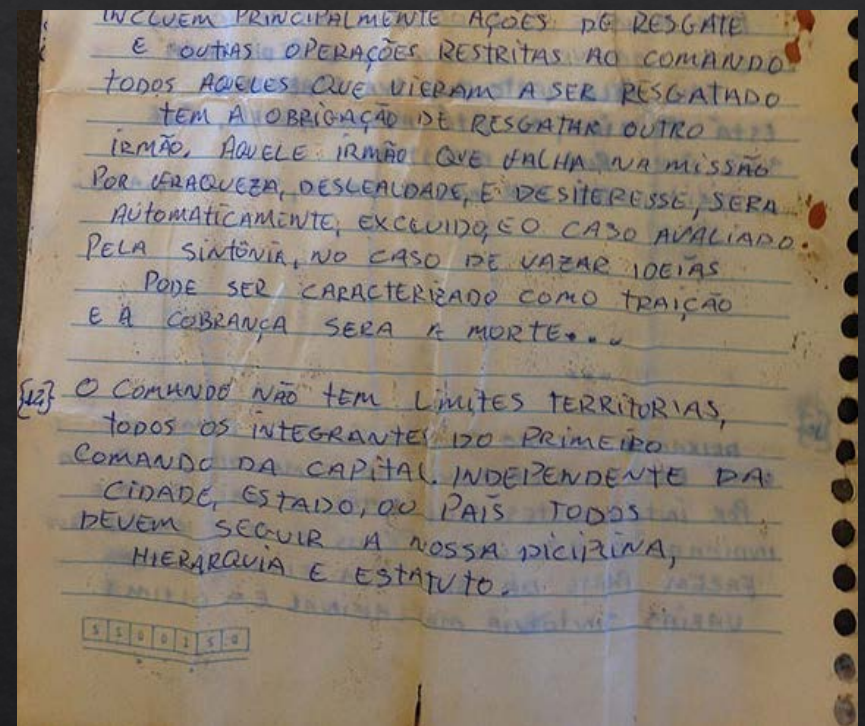 INCLUEM PRINCIPALMENTE AÇÕES DE RESGATE
E OUTRAS OPERAÇÕES RESTRITAS AO COMANDO
TODOS AQUELES QUE VIERAM A SER RESGATADO
TEM A OBRIGAÇÃO DE RESGATAR OUTRO
IRMÃO. AQUELE IRMÃO QUE FALHA NA MISSÃO
POR FRAQUEZA, DESLEALDADE, E DESITERESSE, SERA
AUTOMATICAMENTE, EXCLUIDO, E O CASO AVALIADO.
PELA SINTÔNIA, NO CASO DE VAZAR IDEIAS
PODE SER CARACTERIZADO COMO TRAIÇÃO
E A COBRANÇA SERA A MORTE...
{12} O COMANDO NÃO TEM LIMITES TERRITORIAS,
TODOS OS INTEGRANTES DO PRIMEIRO
COMANDO DA CAPITAL. INDEPENDENTE DA
CIDADE, ESTADO, OU PAÍS TODOS
DEVEM SEGUIR A NOSSA DICIPLINA,
HIERARQUIA E ESTATUTO.